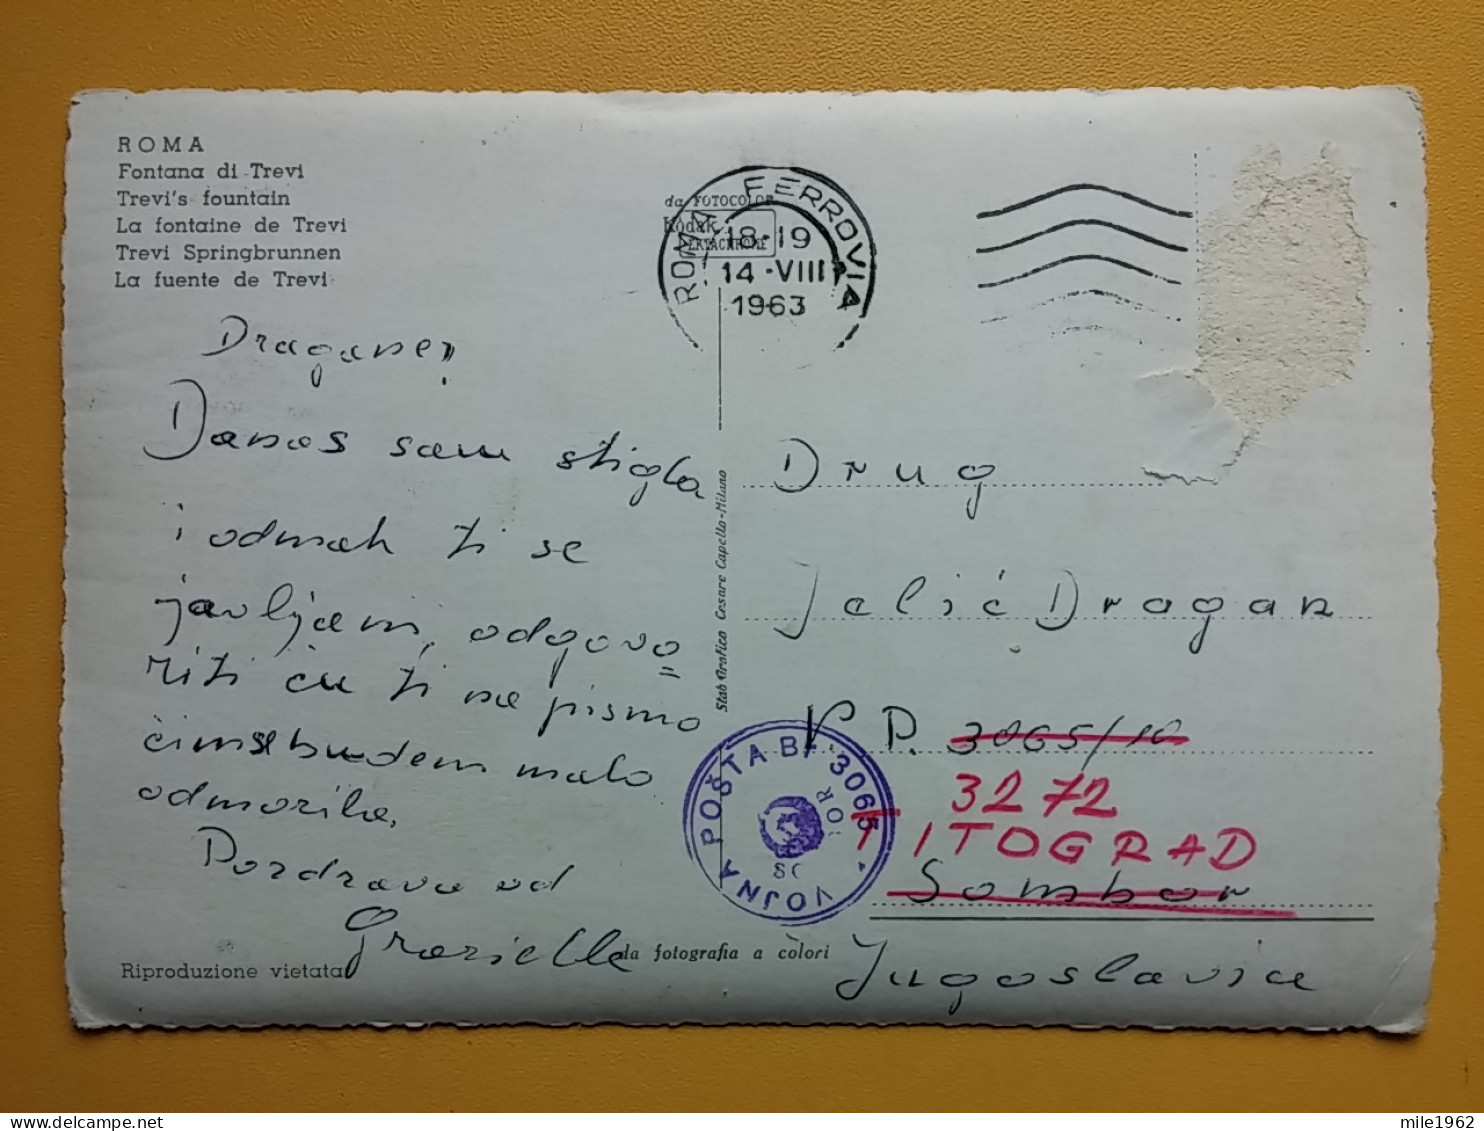 ROMA
Fontana di Trevi
Trevi's fountain
La fontaine de Trevi
Trevi Springbrunnen
La fuente de Trevi
da FOTOCOLOR
Kodak
EKTACHROME
ROMA FERROVIA
18-19
14-VIII
1963
Dragane!
Danas sam stigla
i odmah ti se
javljam, odgovo
riti ću ti na pismo
čim se budem malo
odmorila.
Pozdrava od
Grazielle
Riproduzione vietata
Stab Grafico Cesare Capello-Milano
da fotografia a colori
Drug
Jelić Dragan
V. P. 3065/10
3272
TITOGRAD
Sombor
Jugoslavia
VOJNA POŠTA BR 3065
mile1962